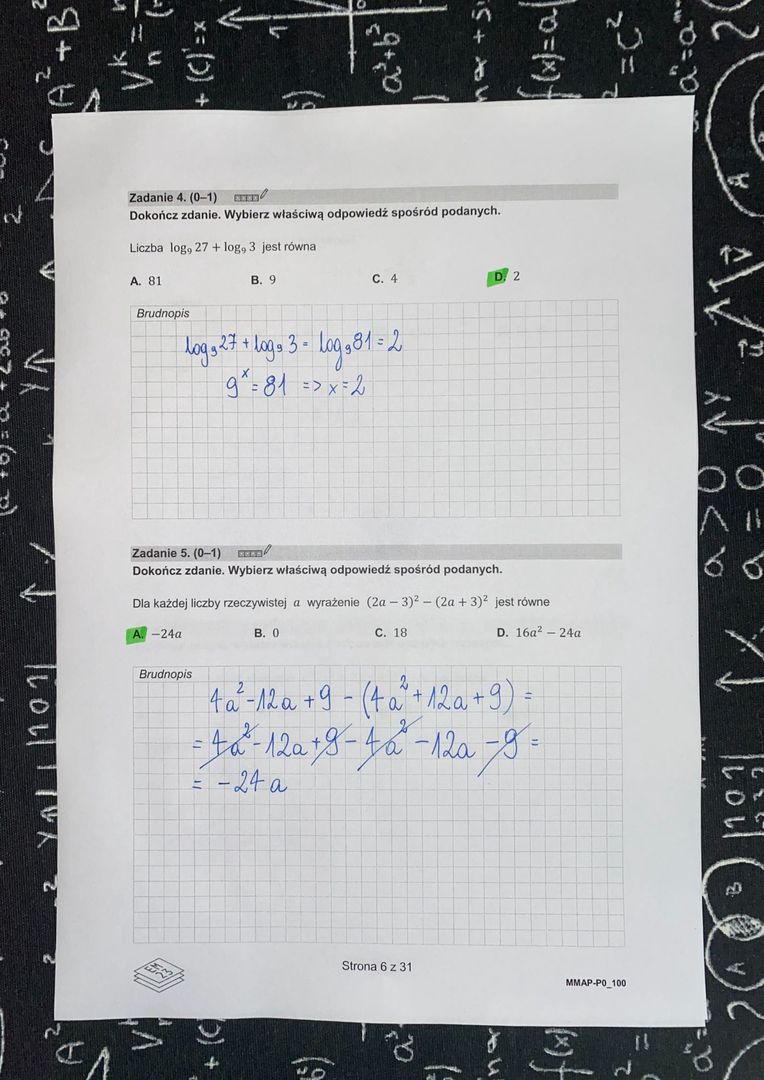 Zadanie 4. (0–1)
Dokończ zdanie. Wybierz właściwą odpowiedź spośród podanych.
Liczba log₉ 27 + log₉ 3 jest równa
A. 81 B. 9 C. 4 D. 2
Brudnopis
log₉27 + log₉ 3 = log₉81 = 2
9ˣ = 81 => x = 2
Zadanie 5. (0–1)
Dokończ zdanie. Wybierz właściwą odpowiedź spośród podanych.
Dla każdej liczby rzeczywistej a wyrażenie (2a − 3)² − (2a + 3)² jest równe
A. −24a B. 0 C. 18 D. 16a² − 24a
Brudnopis
4a² - 12a + 9 - (4a² + 12a + 9) =
= 4a² - 12a + 9 - 4a² - 12a - 9 =
= - 24 a
Strona 6 z 31
MMAP-P0_100